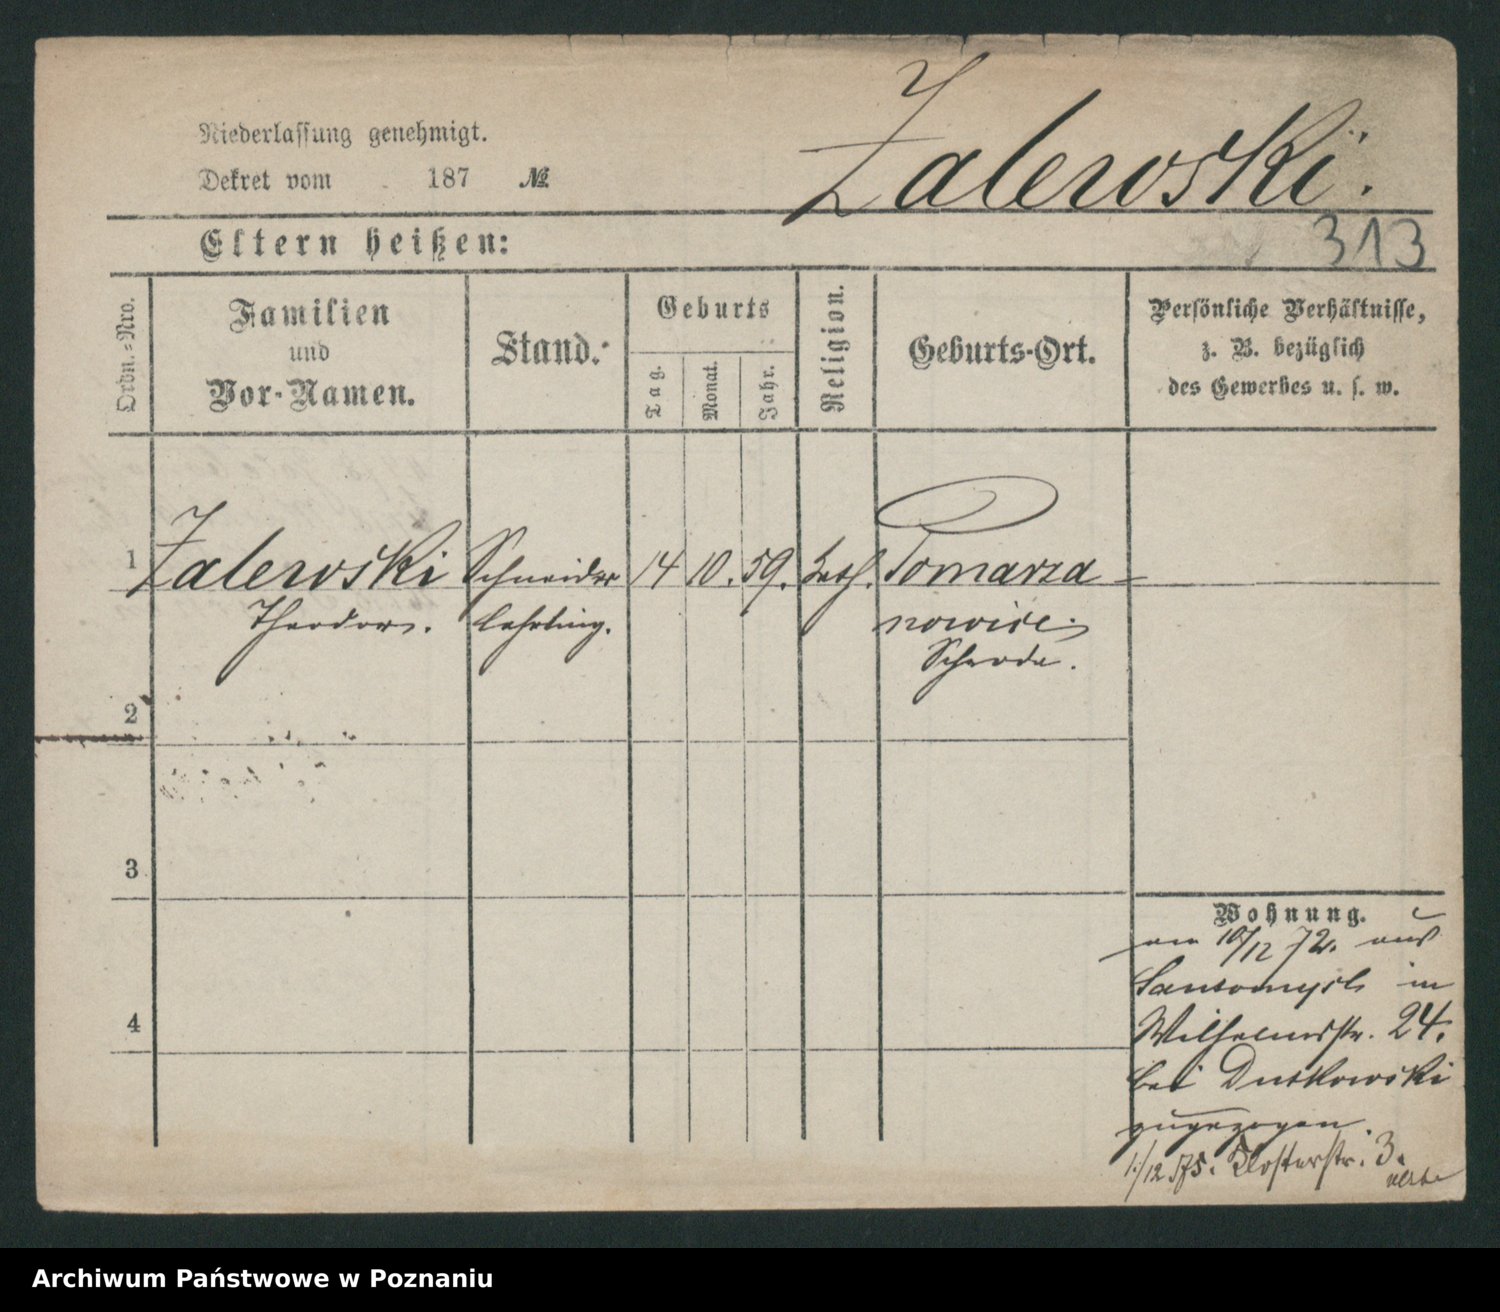 Niederlassung genehmigt.
Dekret vom 187 №
Zalewski.
Eltern heißen:
313
Ordn.=Nro.
Familien
und
Vor-Namen.
Stand.
Geburts
Tag.
Monat.
Jahr.
Religion.
Geburts-Ort.
Persönliche Verhältnisse,
z. B. bezüglich
des Gewerbes u. s. w.
1 Zalewski Schneider 14 10. 59. kath. Pomarza-
Theodor. lehrling. nowice
Schroda.
2
3
4
Wohnung.
am 10/12 72. aus
Santomysl in
Wilhelmsstr. 24.
bei Dutkowski
zugezogen.
1/12 75. Klosterstr. 3.
Archiwum Państwowe w Poznaniu